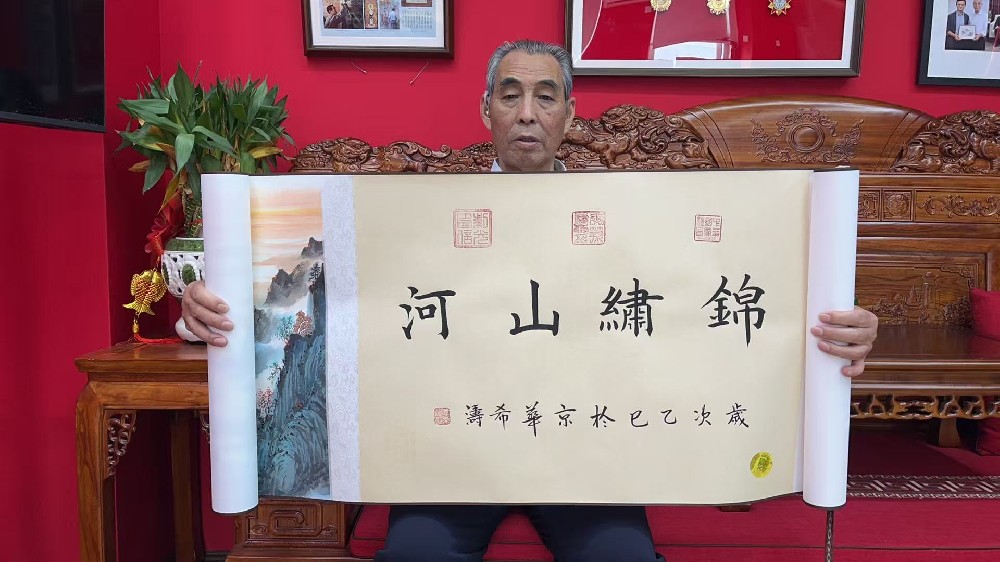 錦繡山河
歲次乙巳於京華希濤